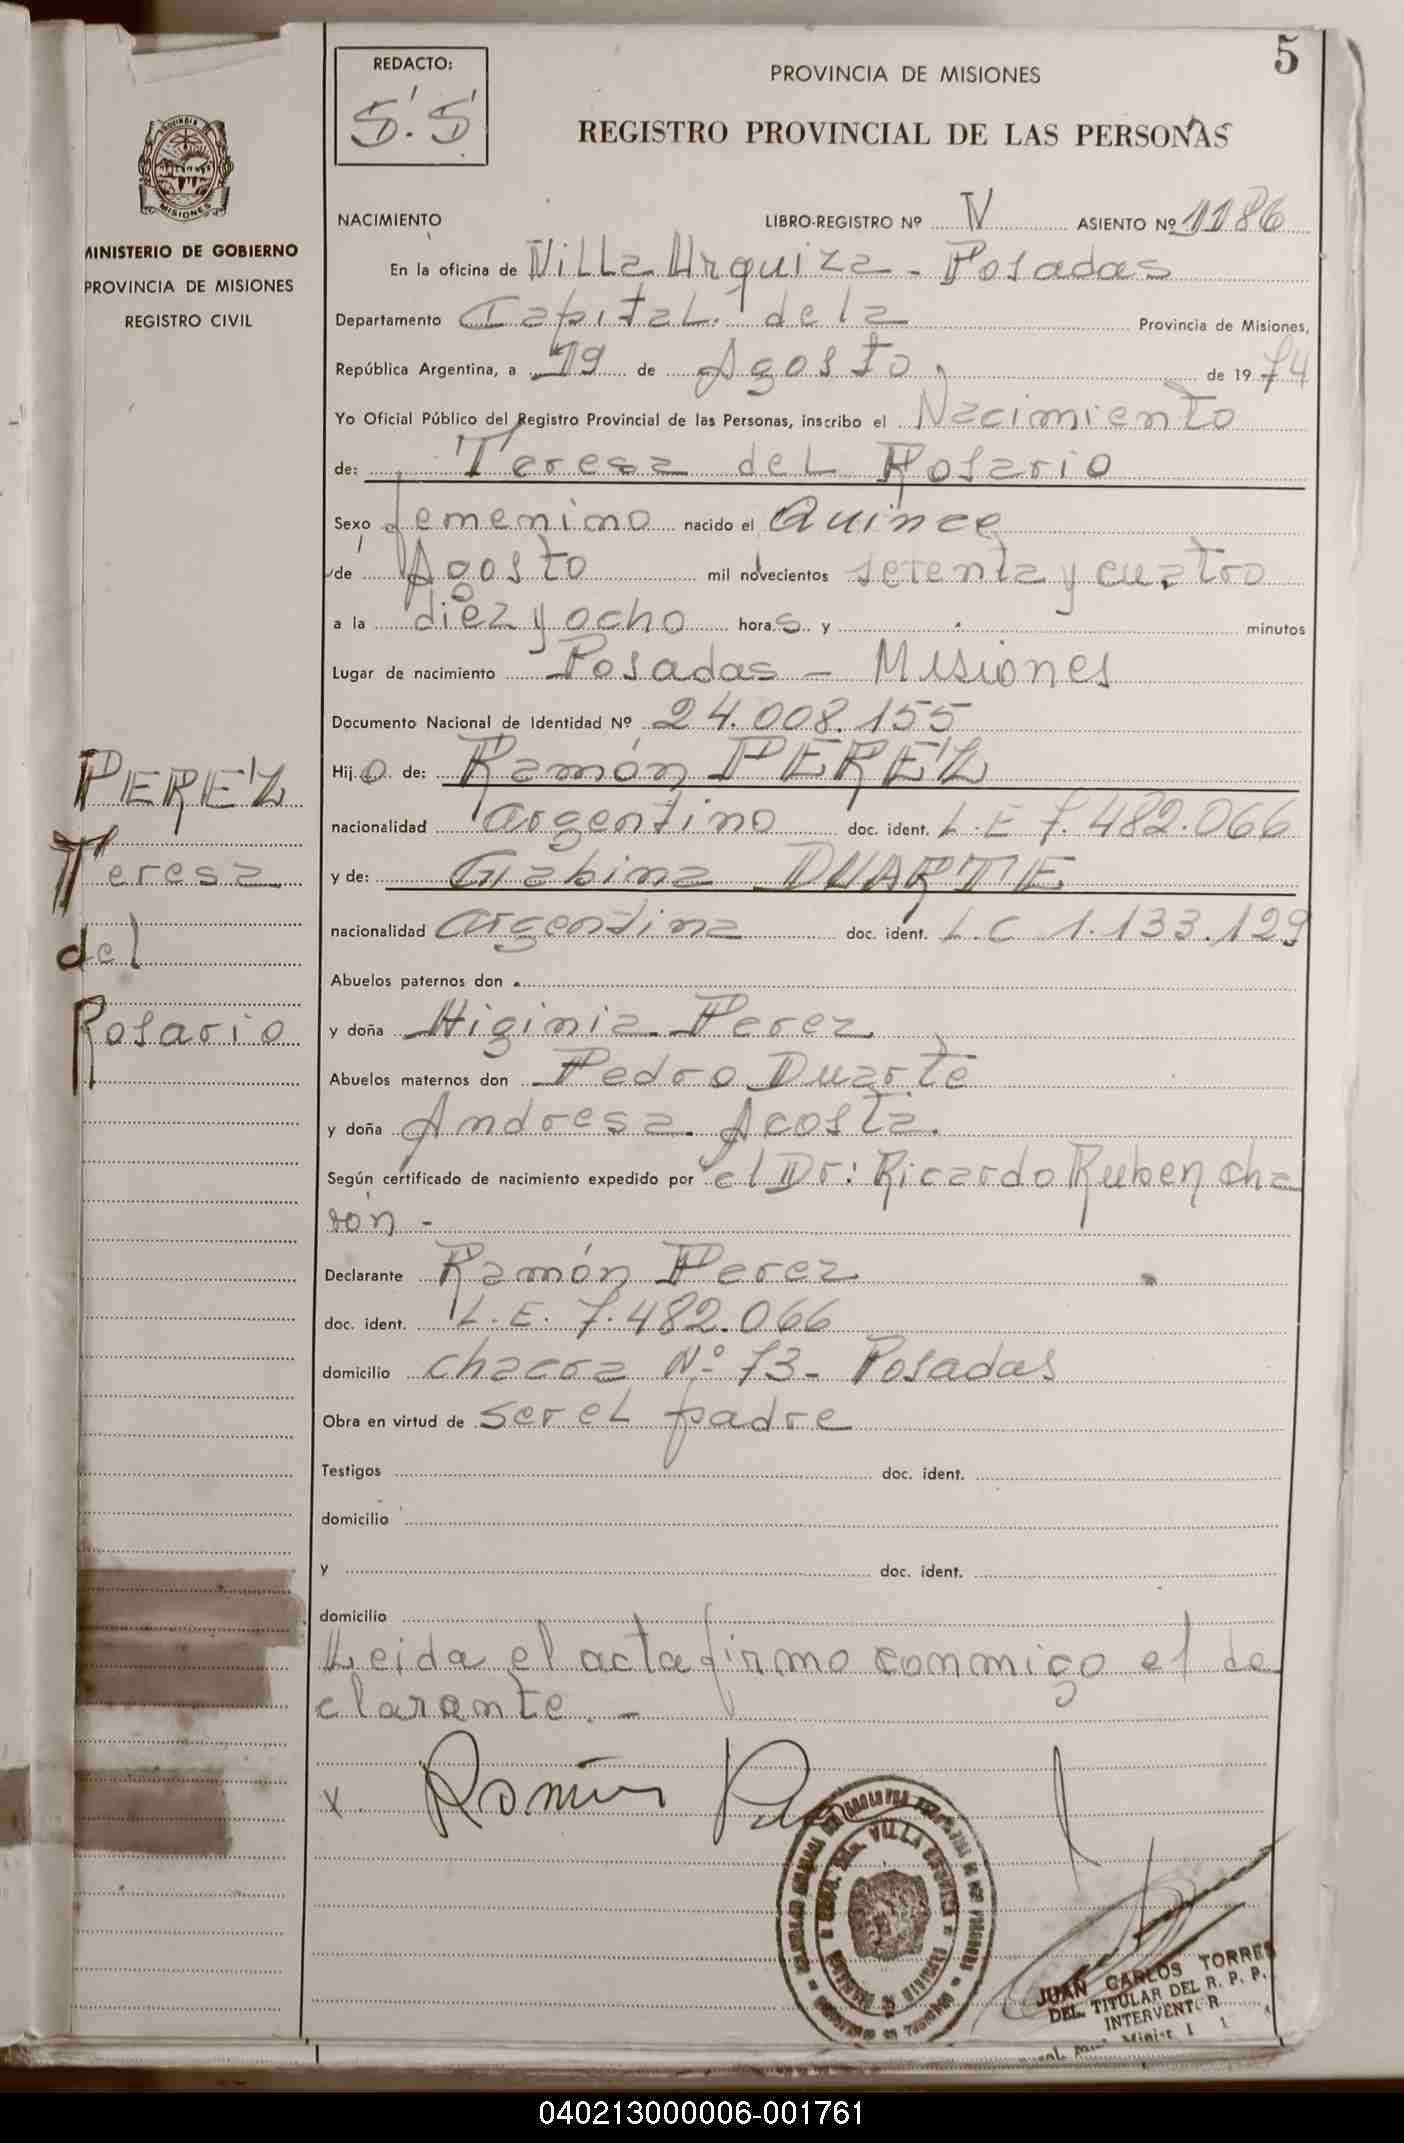 5
REDACTO:
S.S
PROVINCIA DE MISIONES
REGISTRO PROVINCIAL DE LAS PERSONAS
MISIONES
MINISTERIO DE GOBIERNO
PROVINCIA DE MISIONES
REGISTRO CIVIL
NACIMIENTO LIBRO-REGISTRO Nº IV ASIENTO Nº 1186
En la oficina de Villa Urquiza - Posadas
Departamento Capital de la Provincia de Misiones,
República Argentina, a 19 de Agosto de 1974
Yo Oficial Público del Registro Provincial de las Personas, inscribo el Nacimiento
de: Teresa del Rosario
Sexo femenino nacido el Quince
de Agosto mil novecientos setenta y cuatro
a la diez y ocho horas y minutos
Lugar de nacimiento Posadas - Misiones
Documento Nacional de Identidad Nº 24.008.155
Hijo de: Ramón PERÉZ
nacionalidad argentino doc. ident. L.E 7.482.066
y de: Gabina DUARTE
nacionalidad argentina doc. ident. L.C 1.133.129
Abuelos paternos don
y doña Higinia Perez
Abuelos maternos don Pedro Duarte
y doña Andresa Acosta.
Según certificado de nacimiento expedido por el Dr: Ricardo Ruben Cha
rón -
Declarante Ramón Perez
doc. ident. L.E. 7.482.066
domicilio chacra Nº 73 - Posadas
Obra en virtud de ser el padre
Testigos doc. ident.
domicilio
y doc. ident.
domicilio
Leida el acta firmo conmigo el de
clarante. -
PERÉZ
Teresa
del
Rosario
X Ramón
VILLA URQUIZA
JUAN CARLOS TORRES
DEL. TITULAR DEL R. P. P.
INTERVENTOR
040213000006-001761